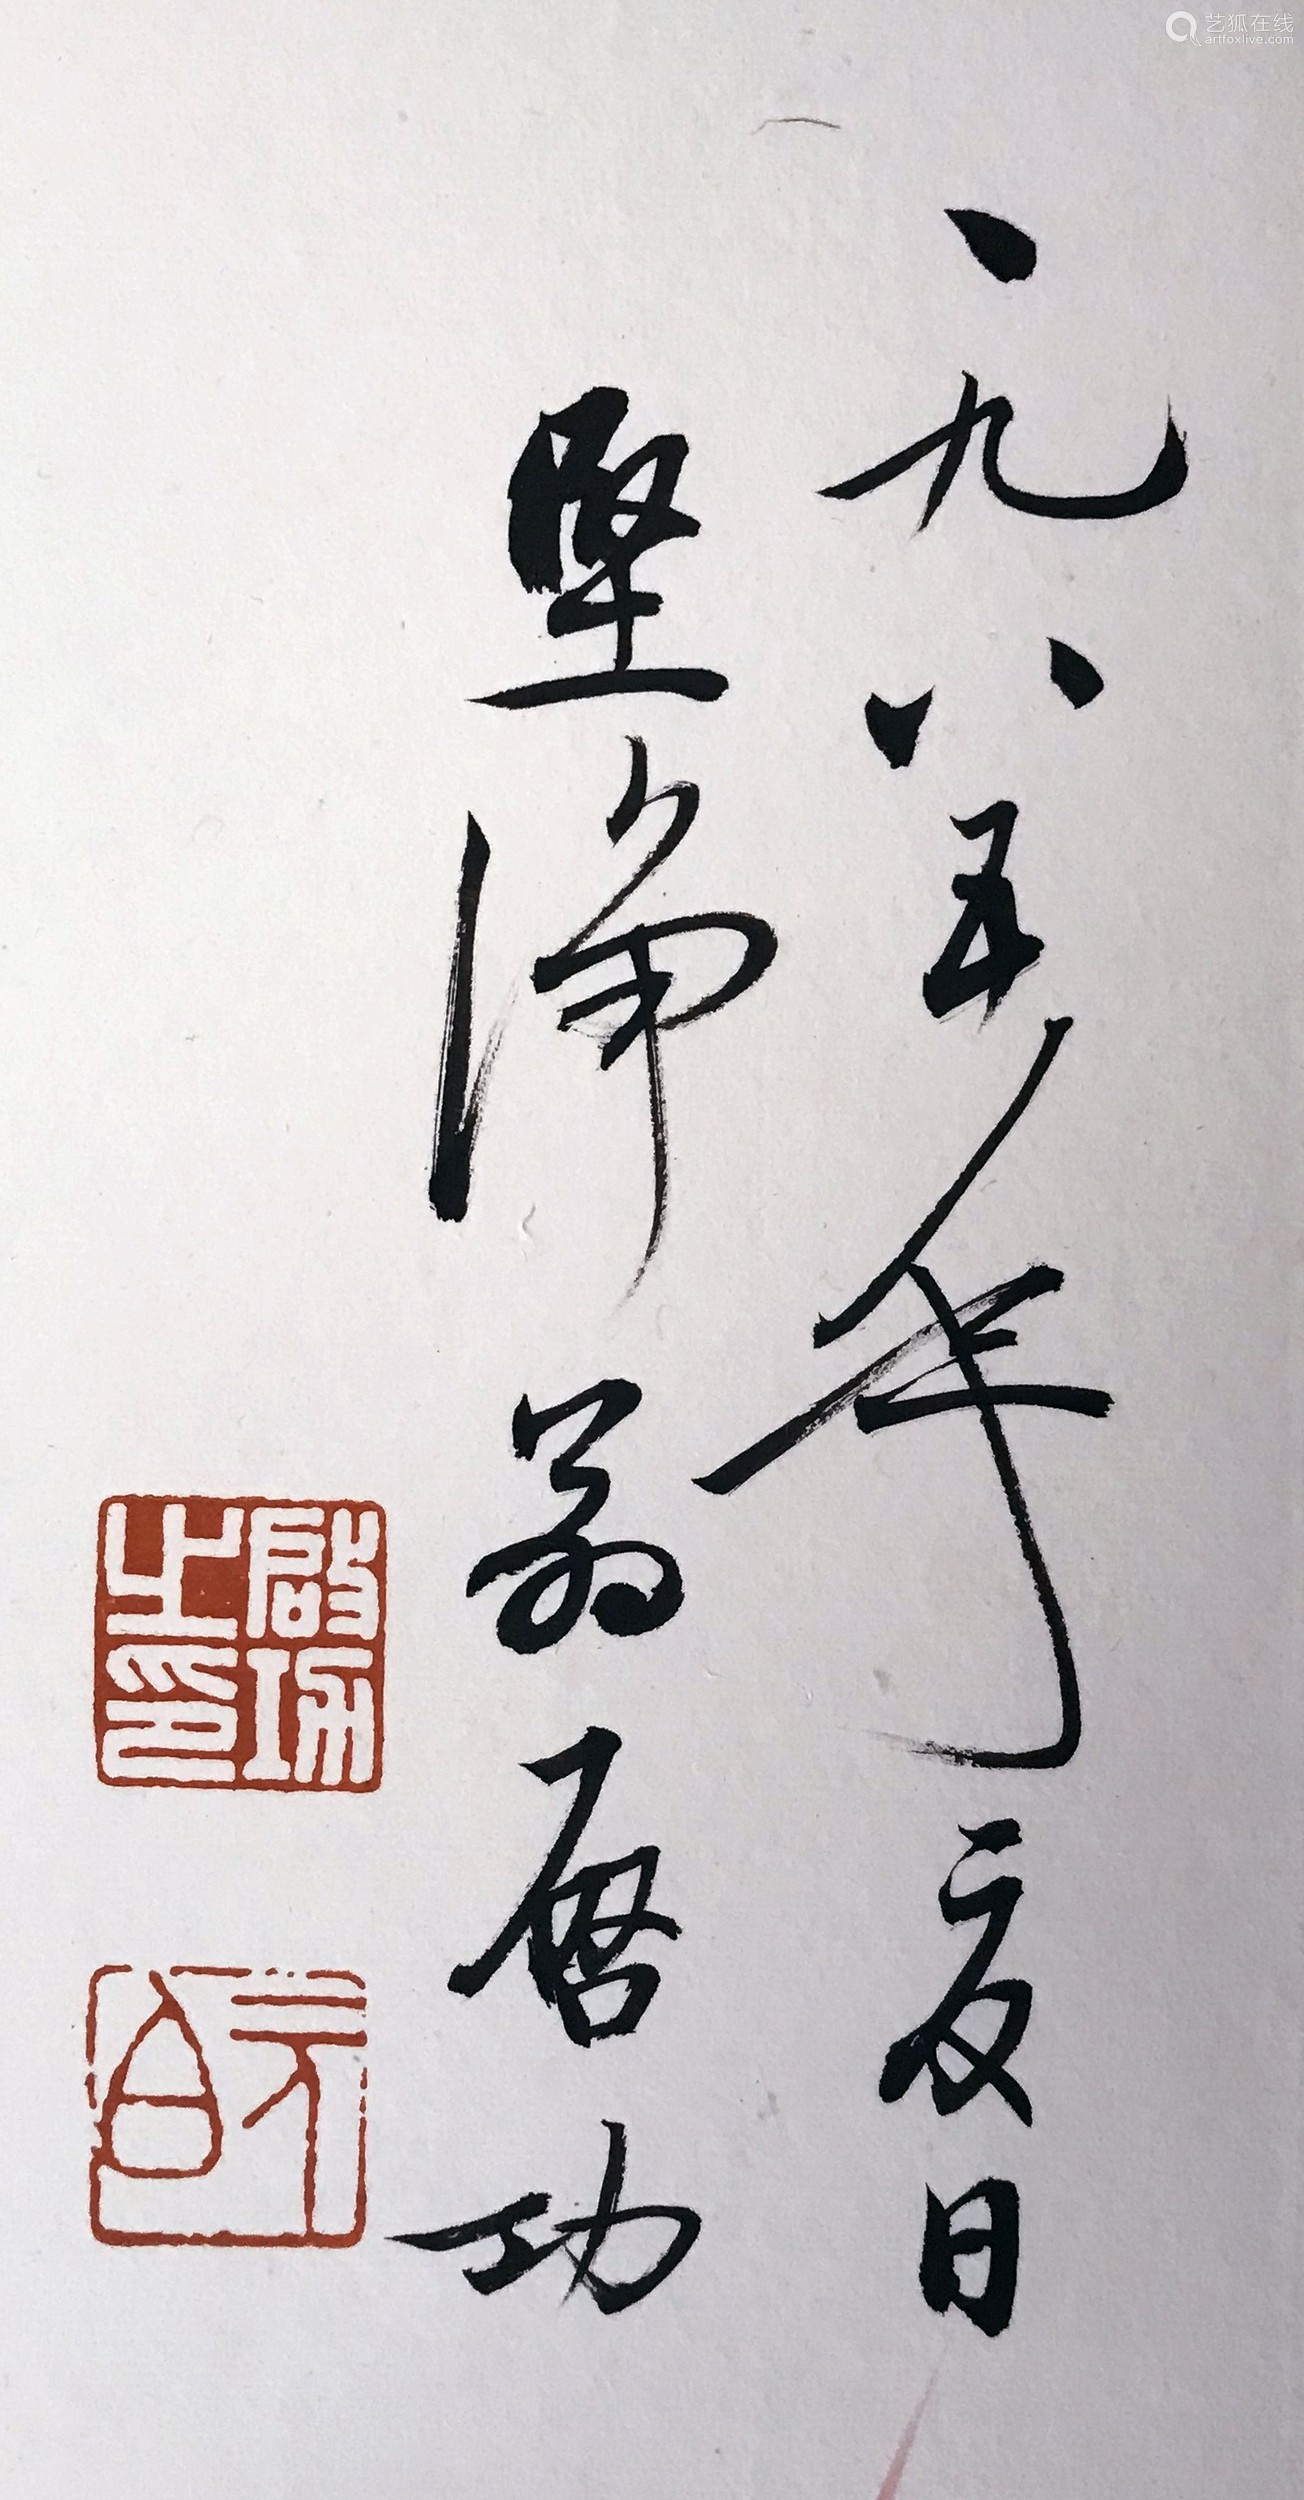 一九八五年夏日
坚净翁启功
啟功之印
元白
艺狐在线
artfoxlive.com